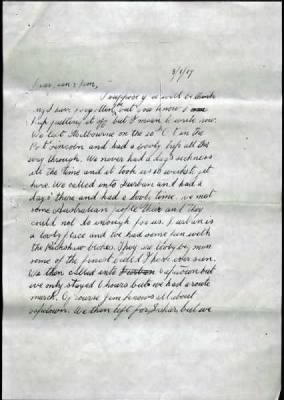 3/1/17
Dear
I suppose you will be think
ing I have forgotten you but you know I
keep putting it off but I mean to write now.
We left Melbourne on the 20th Oct in the
Port Lincoln and had a lovely trip all the
way through. We never had a days sickness
all the time and it took us 10 weeks to get
here. We called into Durban and had a
days there and had a lovely time, we met
some Australian people there and they
could not do enough for us. Durban is
a lovely place and we had some fun with
the Rickshaw blokes. They are
some of the finest built I have ever seen.
We then called into Capetown but
we only stayed 6 hours but we had a route
march. Of course Jim knows all about
Capetown. We then left for Dakar, but we